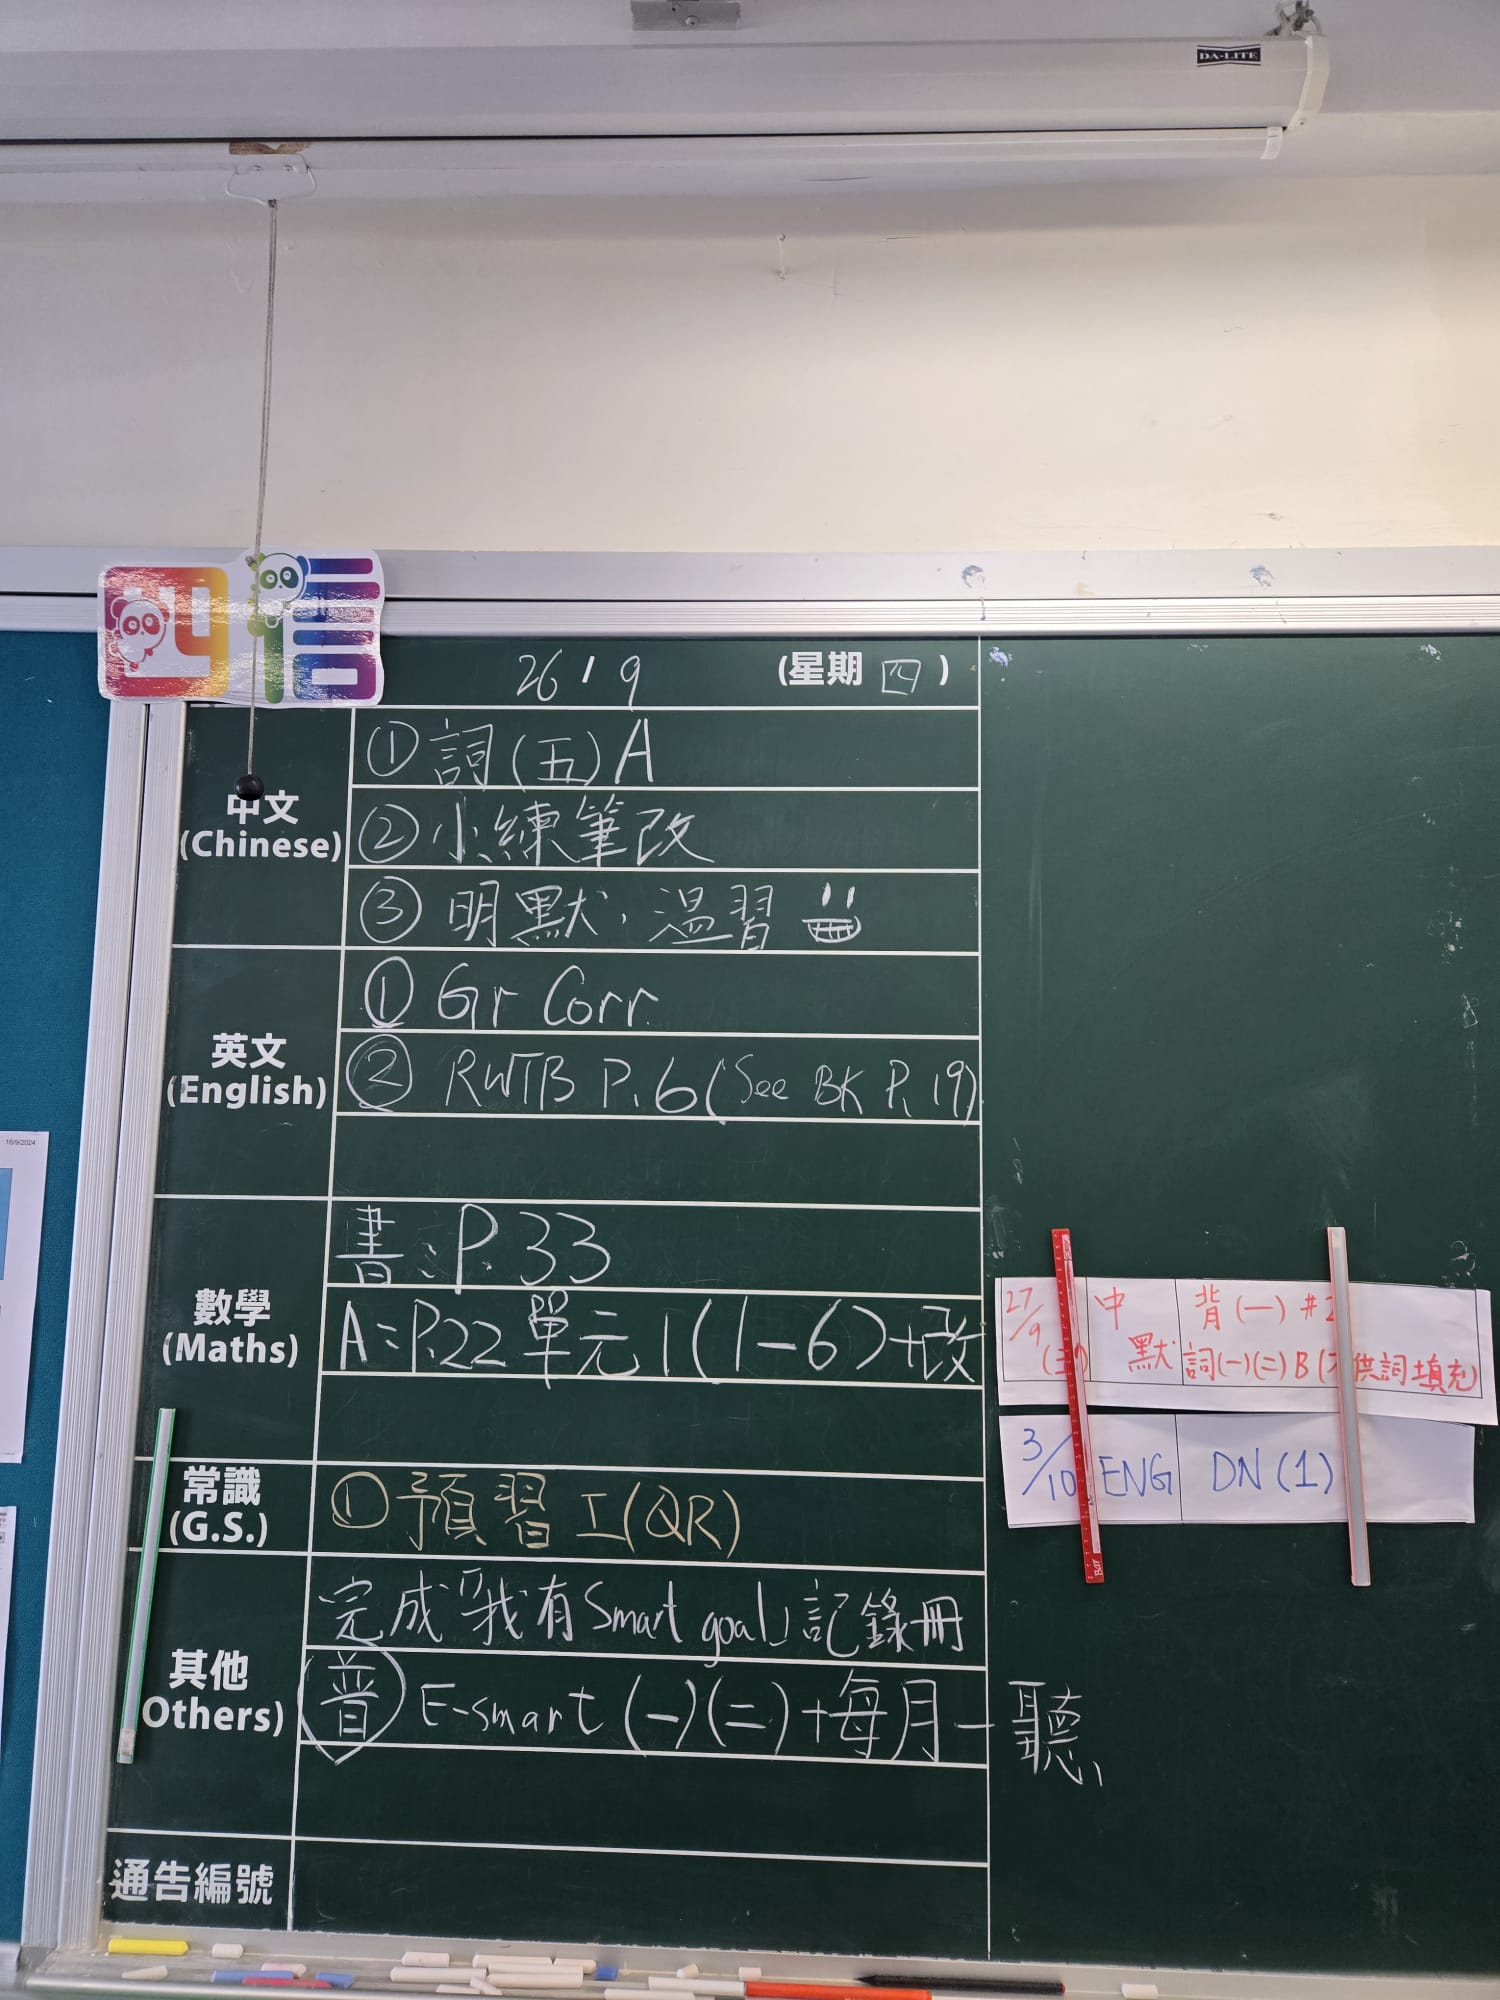 DA-LITE
四信
26 / 9 (星期 四 )
中文
(Chinese)
① 詞(五)A
② 小練筆改
③ 明默，溫習
英文
(English)
① Gr Corr.
② RWTB P.6 (See BK P.19)
16/9/2024
數學
(Maths)
書：P.33
A：P.22 單元1(1-6)+改
常識
(G.S.)
① 預習工(QR)
其他
(Others)
完成「我有Smart goal」記錄冊
普 E-smart (一)(二)+每月一聽
通告編號
27/9 中默 背(一) #2
詞(一)(二)B(供詞填充)
3/10 ENG DN(1)